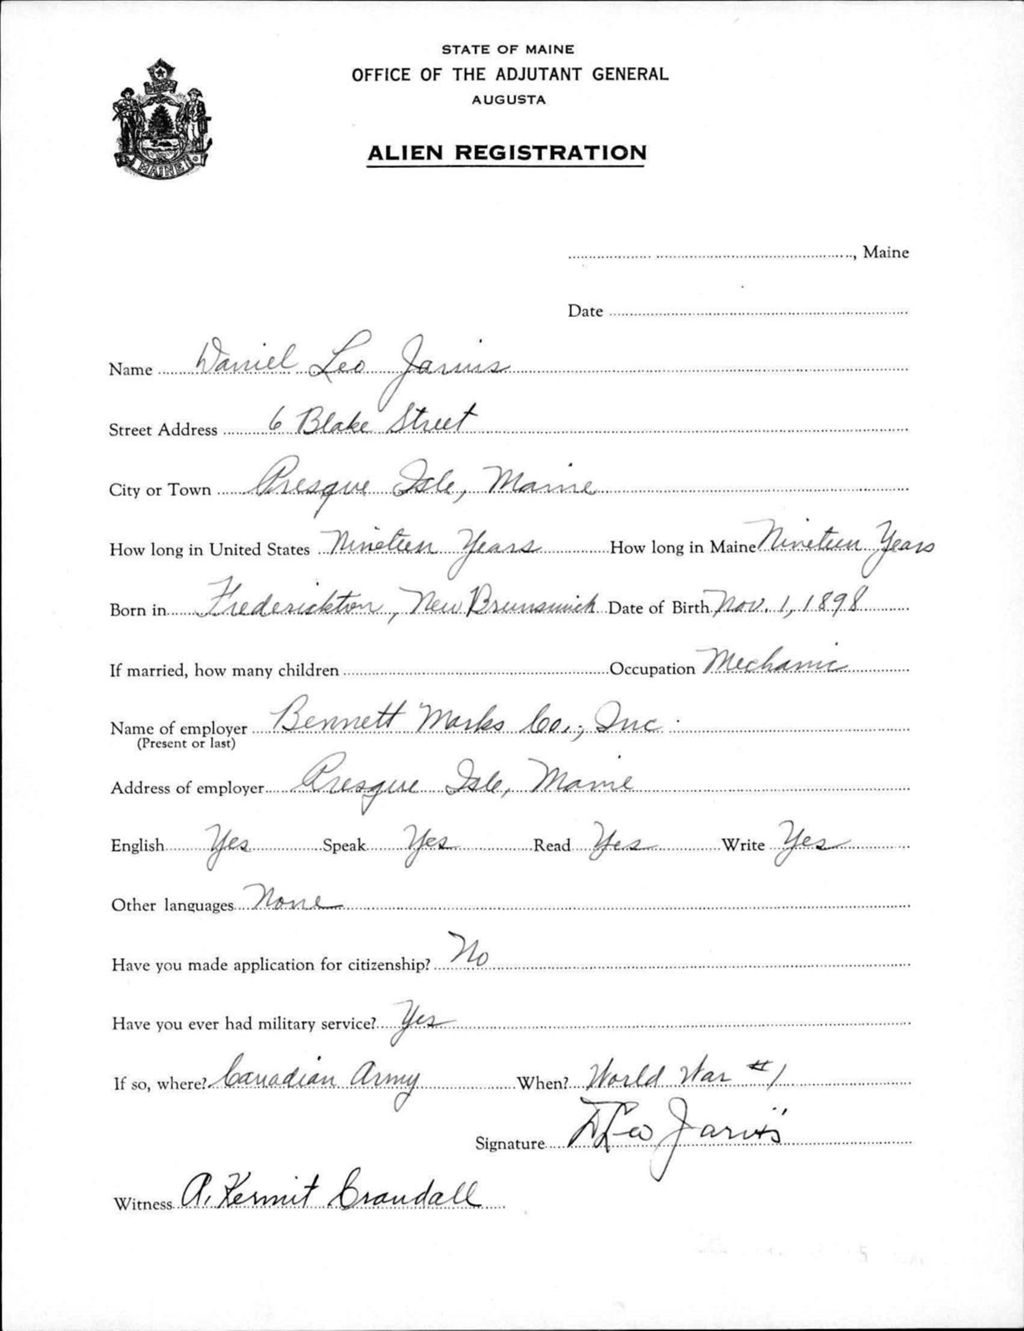 STATE OF MAINE
OFFICE OF THE ADJUTANT GENERAL
AUGUSTA
ALIEN REGISTRATION
MAINE
, Maine
Date
Name Daniel Leo Jarvis
Street Address 6 Blake Street
City or Town Presque Isle, Maine
How long in United States Nineteen Years How long in Maine Nineteen Years
Born in Frederickton, New Brunswick Date of Birth Nov. 1, 1898
If married, how many children Occupation Mechanic
Name of employer Bennett Marks Co., Inc.
(Present or last)
Address of employer Presque Isle, Maine
English Yes Speak Yes Read Yes Write Yes
Other languages None
Have you made application for citizenship? No
Have you ever had military service? Yes
If so, where? Canadian Army When? World War #1
Signature D Leo Jarvis
Witness A. Kermit Crandall